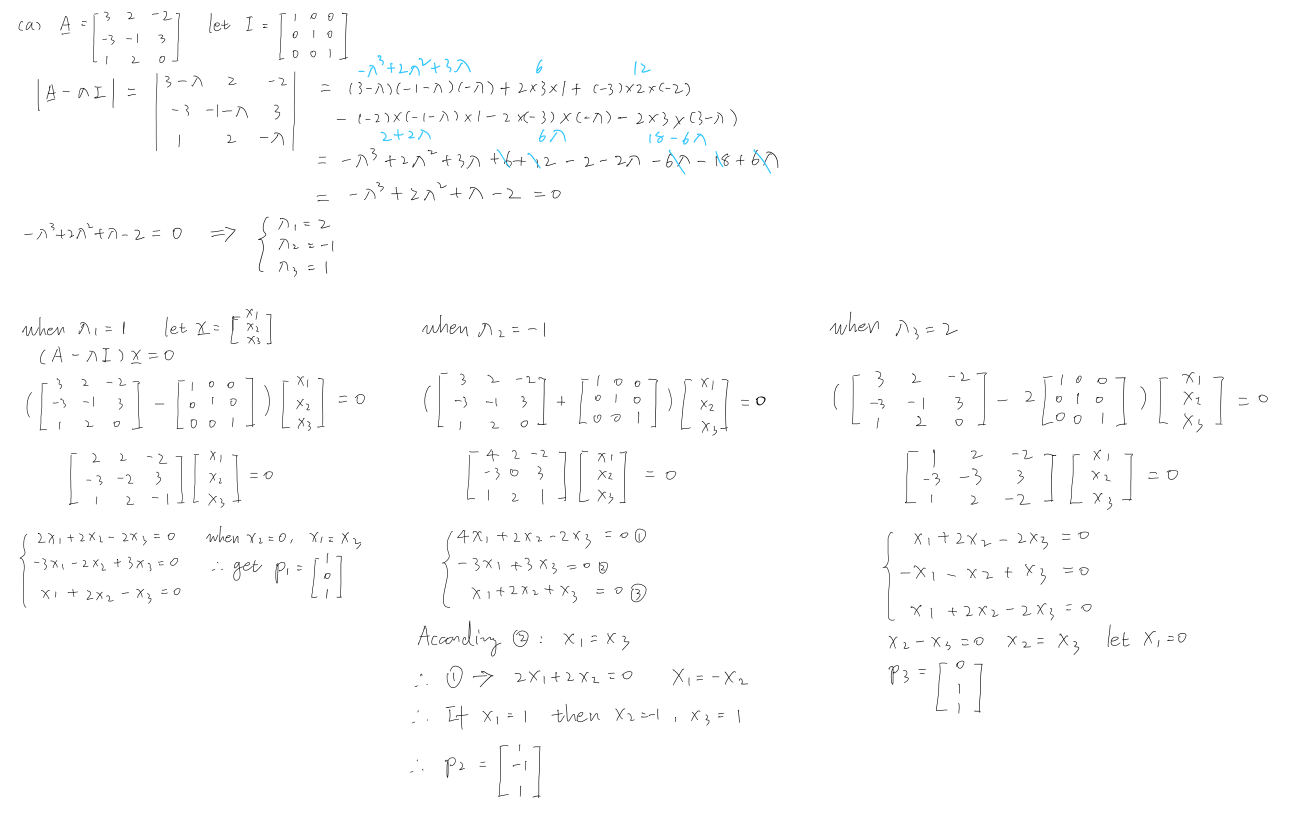 (a) A = [3 2 -2; -3 -1 3; 1 2 0] let I = [1 0 0; 0 1 0; 0 0 1]
-λ³+2λ²+3λ 6 12
|A - λI| = |3-λ 2 -2; -3 -1-λ 3; 1 2 -λ| = (3-λ)(-1-λ)(-λ) + 2×3×1 + (-3)×2×(-2)
- (-2)×(-1-λ)×1 - 2×(-3)×(-λ) - 2×3×(3-λ)
2+2λ 6λ 18-6λ
= -λ³+2λ²+3λ+6+12-2-2λ-6λ-18+6λ
= -λ³+2λ²+λ-2 = 0
-λ³+2λ²+λ-2 = 0 => { λ1 = 2
λ2 = -1
λ3 = 1
when λ1 = 1 let x = [x1; x2; x3]
(A - λI) x = 0
([3 2 -2; -3 -1 3; 1 2 0] - [1 0 0; 0 1 0; 0 0 1]) [x1; x2; x3] = 0
[2 2 -2; -3 -2 3; 1 2 -1] [x1; x2; x3] = 0
{ 2x1+2x2-2x3 = 0 when x2=0, x1=x3
-3x1-2x2+3x3 = 0 ∴ get p1 = [1; 0; 1]
x1+2x2-x3 = 0
when λ2 = -1
([3 2 -2; -3 -1 3; 1 2 0] + [1 0 0; 0 1 0; 0 0 1]) [x1; x2; x3] = 0
[4 2 -2; -3 0 3; 1 2 1] [x1; x2; x3] = 0
{ 4x1+2x2-2x3 = 0 ①
-3x1+3x3 = 0 ②
x1+2x2+x3 = 0 ③
Acoording ②: x1 = x3
∴ ① → 2x1+2x2 = 0 x1 = -x2
∴ If x1 = 1 then x2 = -1, x3 = 1
∴ p2 = [1; -1; 1]
when λ3 = 2
([3 2 -2; -3 -1 3; 1 2 0] - 2[1 0 0; 0 1 0; 0 0 1]) [x1; x2; x3] = 0
[1 2 -2; -3 -3 3; 1 2 -2] [x1; x2; x3] = 0
{ x1+2x2-2x3 = 0
-x1-x2+x3 = 0
x1+2x2-2x3 = 0
x2-x3 = 0 x2 = x3 let x1=0
p3 = [0; 1; 1]